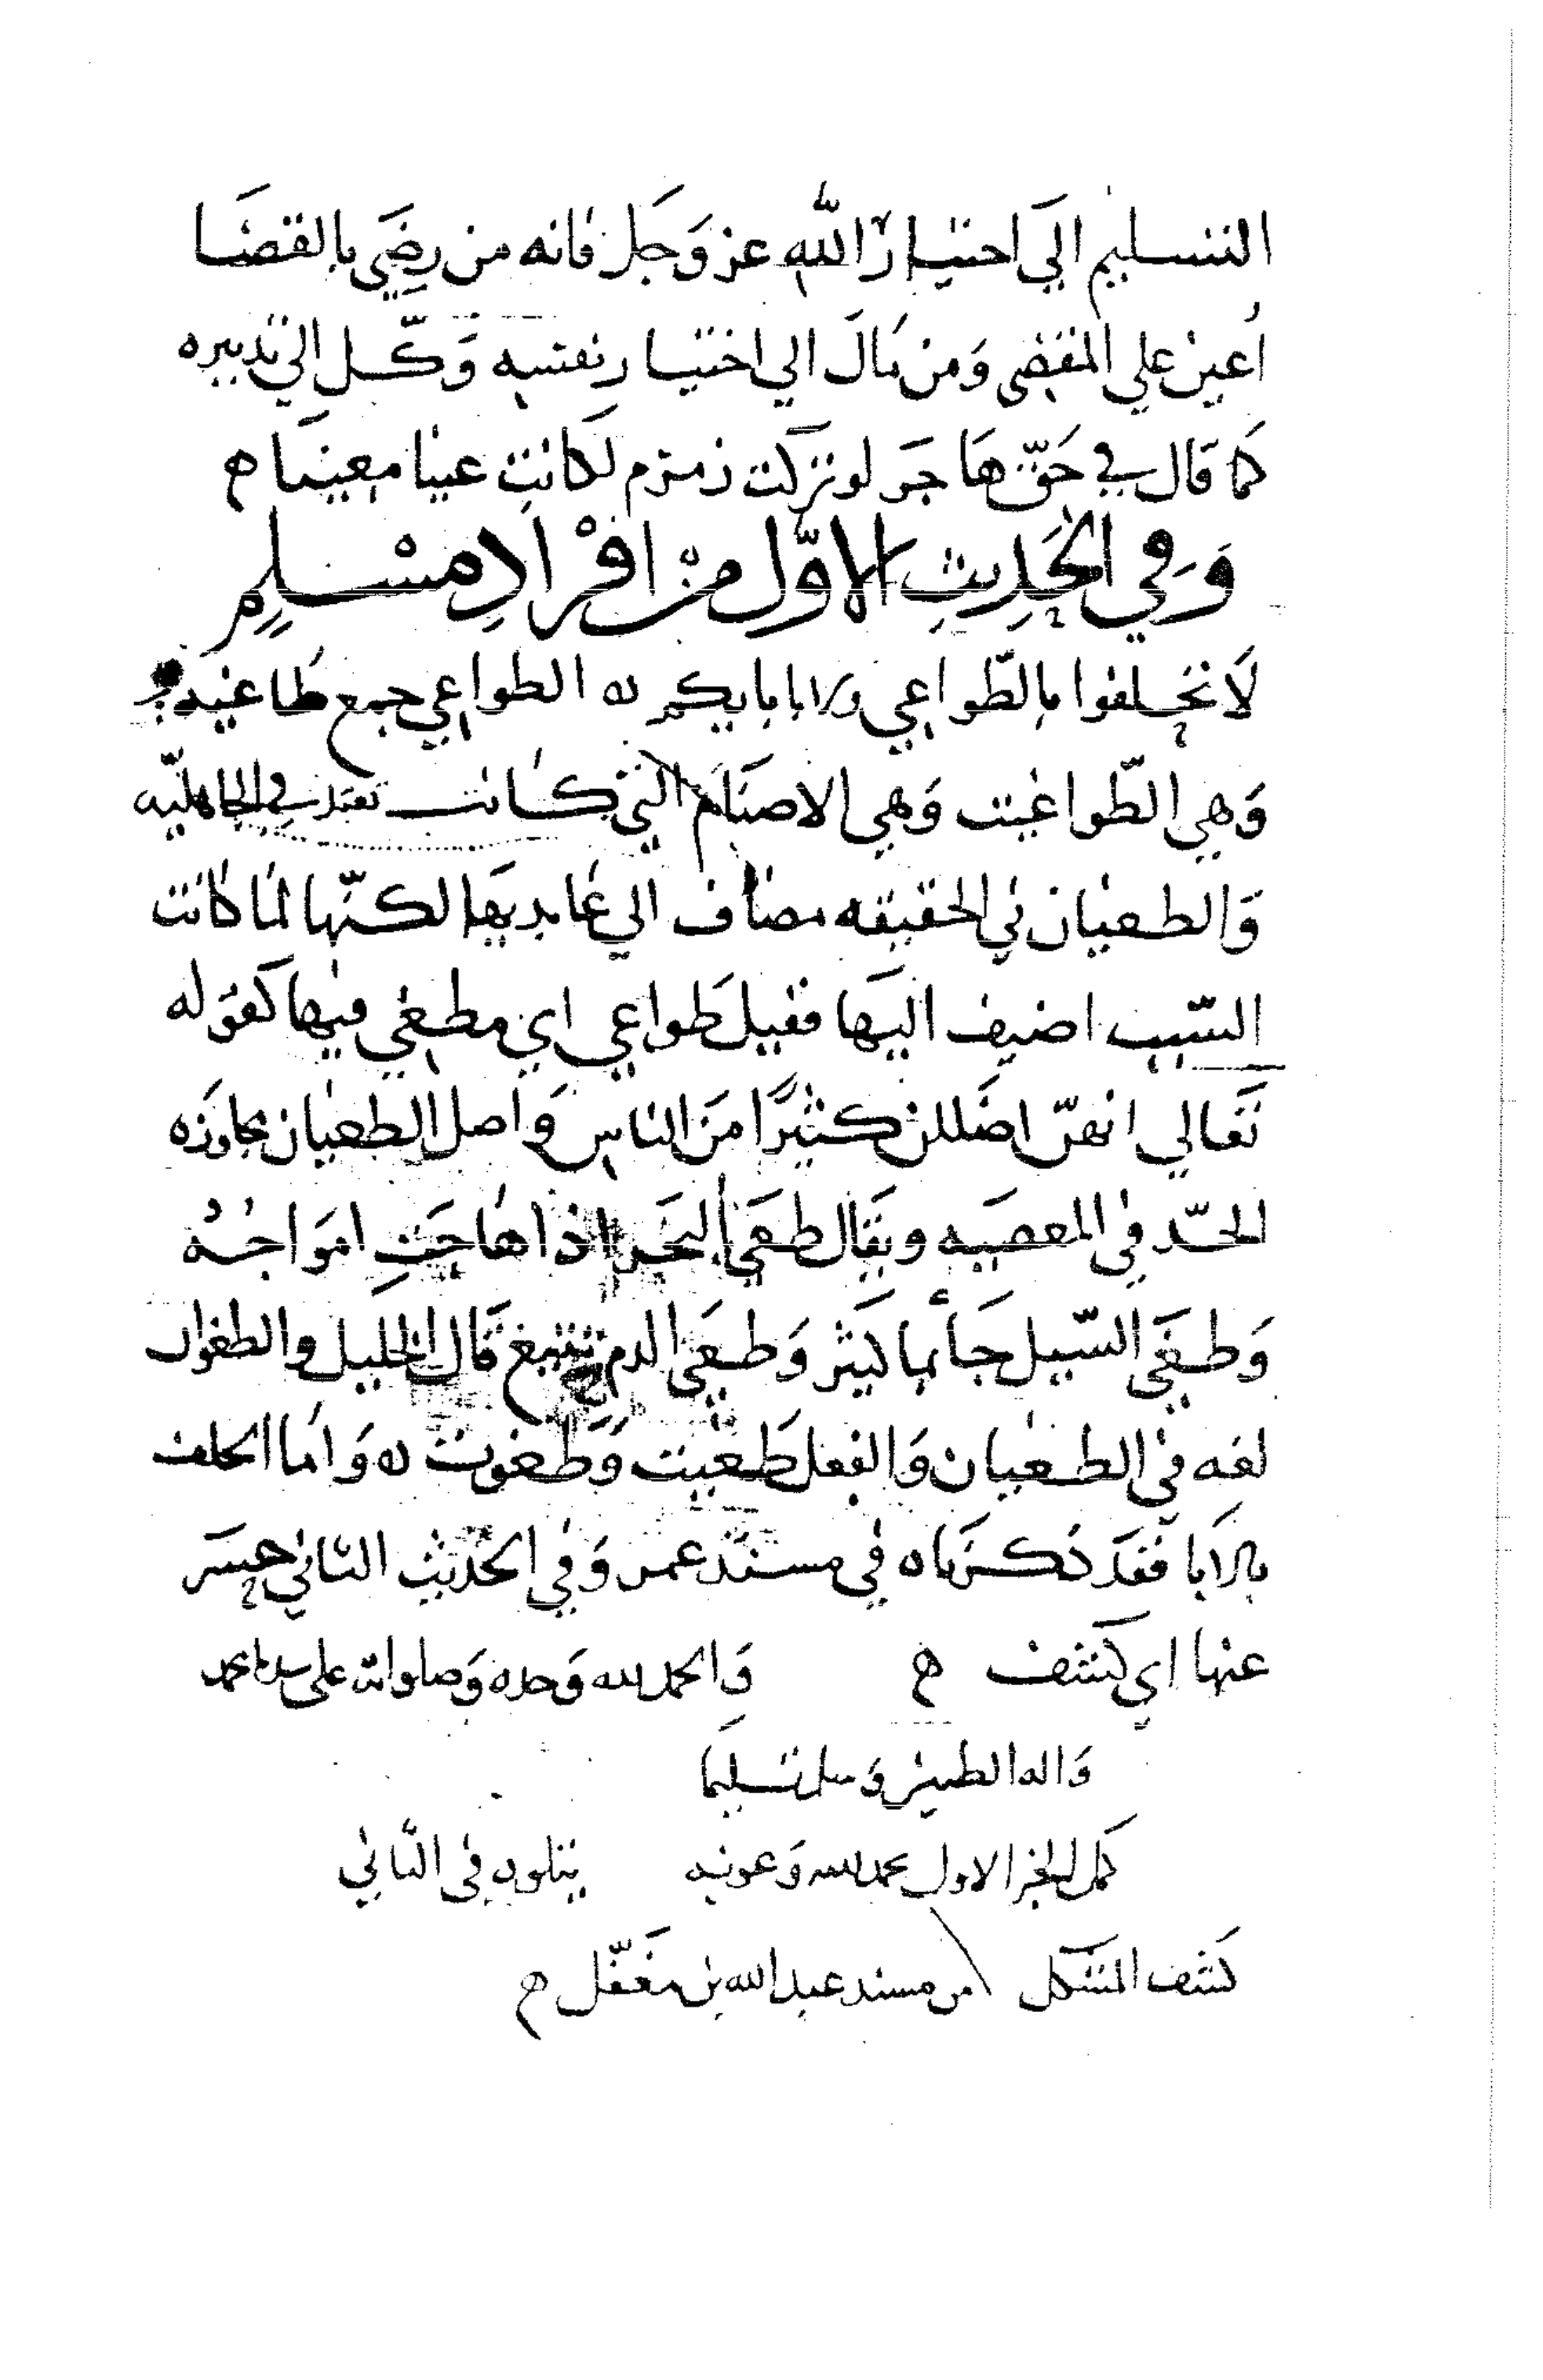 التسليم الي اختيار الله عز وجل فانه من رضي بالقضا
اعين علي المقضي ومن مال الي اختيار نفسه وكل الي تدبيره
كما قال في حق هاجر لو تركت زمزم لكانت عينا معينا ه
وفي الحديث الاول من افراد مسلم
لا تحلفوا بالطواغي ولا بابايكم ه الطواغي جمع طاغيه
وهي الطواغيت وهي الاصنام التي كانت تعبد في الجاهليه
والطغيان في الحقيقه مضاف الي عابديها لكنها لما كانت
السبب اضيف اليها فقيل طواغي اي مطغي فيها كقوله
تعالي انهن اضللن كثيرا من الناس واصل الطغيان مجاوزه
الحد في المعصيه ويقال طغي البحر اذا هاجت امواجه
وطغي السيل جا بما كثير وطغي الدم تبيغ قال الخليل والطغوان
لغه في الطغيان والفعل طغيت وطغوت ه واما الحلف
بالابا فقد ذكرناه في مسند عمر وفي الحديث الثاني حسر
عنها اي كشف ه والحمد لله وحده وصلواته علي سيدنا محمد
واله الطيبين وسلم تسليما
كمل الجز الاول بحمد الله وعونه يتلوه في الثاني
كشف المشكل من مسند عبد الله بن مغفل ه